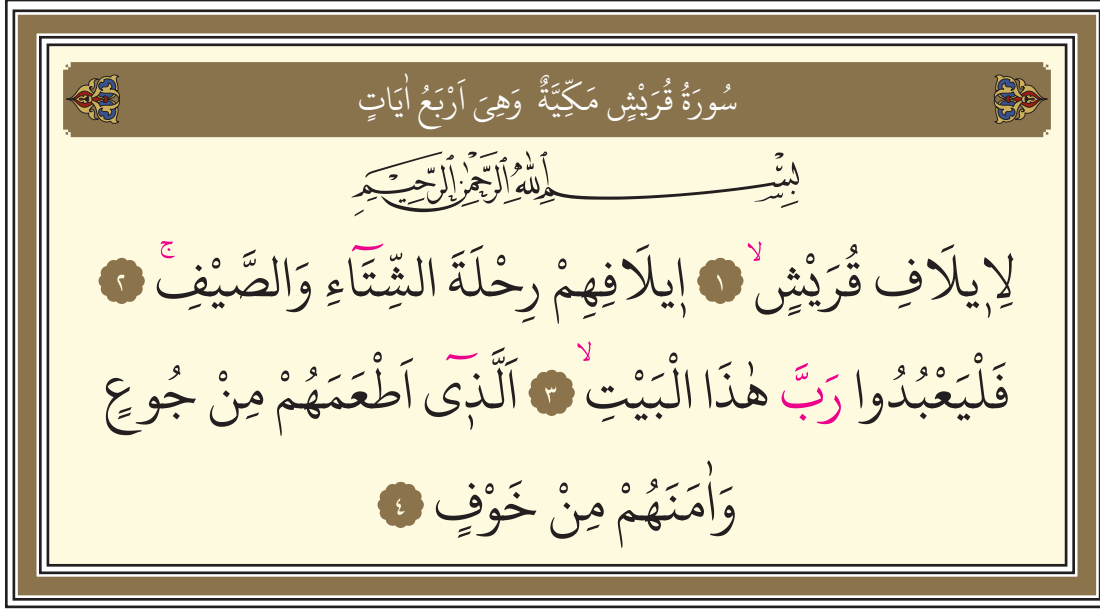 سُورَةُ قُرَيْشٍ مَكِّيَّةٌ وَهِىَ اَرْبَعُ اٰيَاتٍ
بِسْمِ اللّٰهِ الرَّحْمٰنِ الرَّحِيمِ
لِا۪يلَافِ قُرَيْشٍۙ ﴿١﴾ ا۪يلَافِهِمْ رِحْلَةَ الشِّتَٓاءِ وَالصَّيْفِۚ ﴿٢﴾
فَلْيَعْبُدُوا رَبَّ هٰذَا الْبَيْتِۙ ﴿٣﴾ اَلَّذ۪ٓى اَطْعَمَهُمْ مِنْ جُوعٍ
وَاٰمَنَهُمْ مِنْ خَوْفٍ ﴿٤﴾